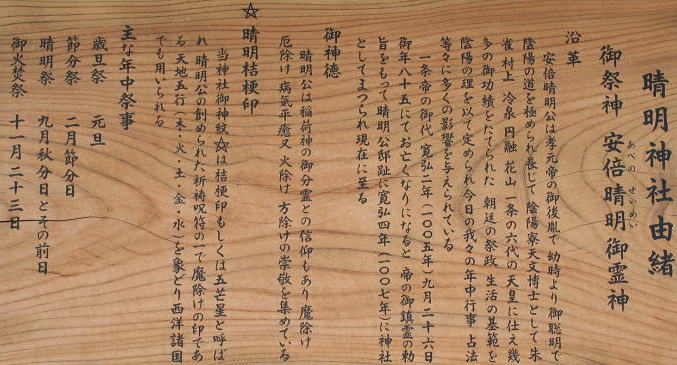 晴明神社由緒
御祭神 安倍晴明御霊神
あべの せいめい
沿革
安倍晴明公は孝元帝の御後胤で 幼時より御聡明で
陰陽の道を極められ長じて 陰陽寮天文博士として 朱
雀 村上 冷泉 円融 花山 一条の六代の天皇に仕え幾
多の御功績をたてられた 朝廷の祭政 生活の基範を
陰陽の理を以て定められ今日の我々の年中行事 占法
等々に多くの影響を与えられている
一条帝の御代 寛弘二年(一〇〇五年)九月二十六日
御年八十五にてお亡くなりになると 帝の御鎮霊の勅
旨をもって晴明公邸趾に寛弘四年(一〇〇七年)に神社
としてまつられ現在に至る
御神徳
晴明公は稲荷神の御分霊との信仰もあり 魔除け
厄除け 病気平癒又 火除け 方除けの崇敬を集めている
☆ 晴明桔梗印
当神社御神紋☆は桔梗印もしくは五芒星と呼ば
れ 晴明公の創められた祈祷呪符の一で 魔除けの印であ
る 天地五行(木・火・土・金・水)を象どり西洋諸国
でも用いられる
主な年中祭事
歳旦祭 元旦
節分祭 二月節分日
晴明祭 九月秋分日とその前日
御火焚祭 十一月二十三日